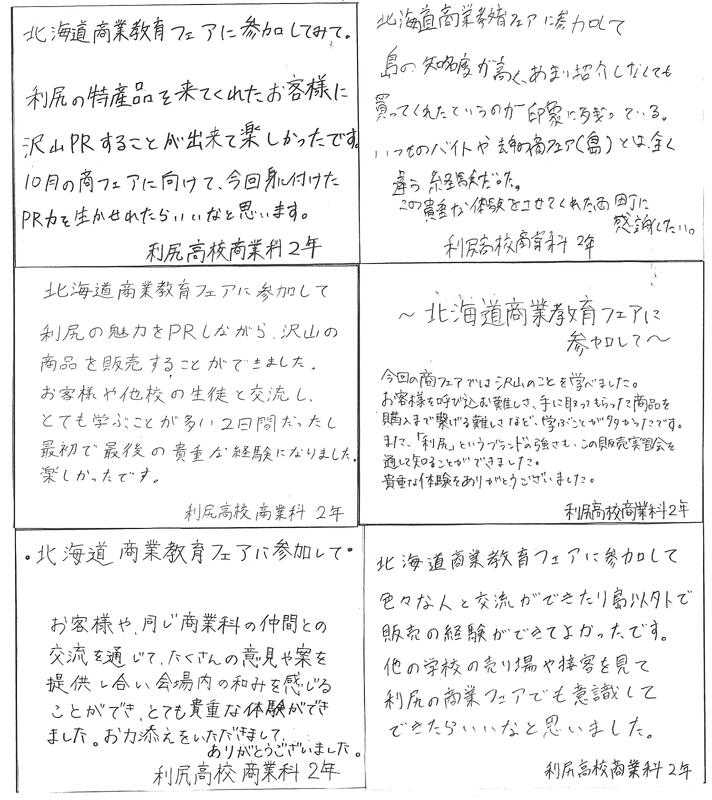 北海道商業教育フェアに参加してみて。
利尻の特産品を来てくれたお客様に
沢山PRすることが出来て楽しかったです。
10月の商フェアに向けて、今回身に付けた
PR力を生かせれたらいいなと思います。
利尻高校商業科2年
北海道商業教育フェアに参加して
島の知名度が高く、あまり紹介しなくても
買ってくれたというのが印象に残っている。
いつものバイトや去年の商フェア(島)とは、全く
違う経験だった。
この貴重な体験をさせてくれた両町に
感謝したい。
利尻高校商業科 2年
北海道商業教育フェアに参加して
利尻の魅力をPRしながら、沢山の
商品を販売することができました。
お客様や他校の生徒と交流し、
とても学ぶことが多い2日間だったし
最初で最後の貴重な経験になりました。
楽しかったです。
利尻高校商業科 2年
～北海道商業教育フェアに
参加して～
今回の商フェアでは沢山のことを学べました。
お客様を呼び込む難しさ、手に取ってもらった商品を
購入まで繋げる難しさなど、学ぶことが多かったです。
また、「利尻」というブランドの強さも、この販売実習会を
通して知ることができました。
貴重な体験をありがとうございました。
利尻高校商業科2年
・北海道商業教育フェアに参加して・
お客様や、同じ商業科の仲間との
交流を通じて、たくさんの意見や案を
提供し合い会場内の和みを感じる
ことができ、とても貴重な体験ができ
ました。お力添えをいただきまして、
ありがとうございました。
利尻高校商業科2年
北海道商業教育フェアに参加して
色々な人と交流ができたり島以外で
販売の経験ができてよかったです。
他の学校の売り場や接客を見て
利尻の商業フェアでも意識して
できたらいいなと思いました。
利尻高校商業科2年